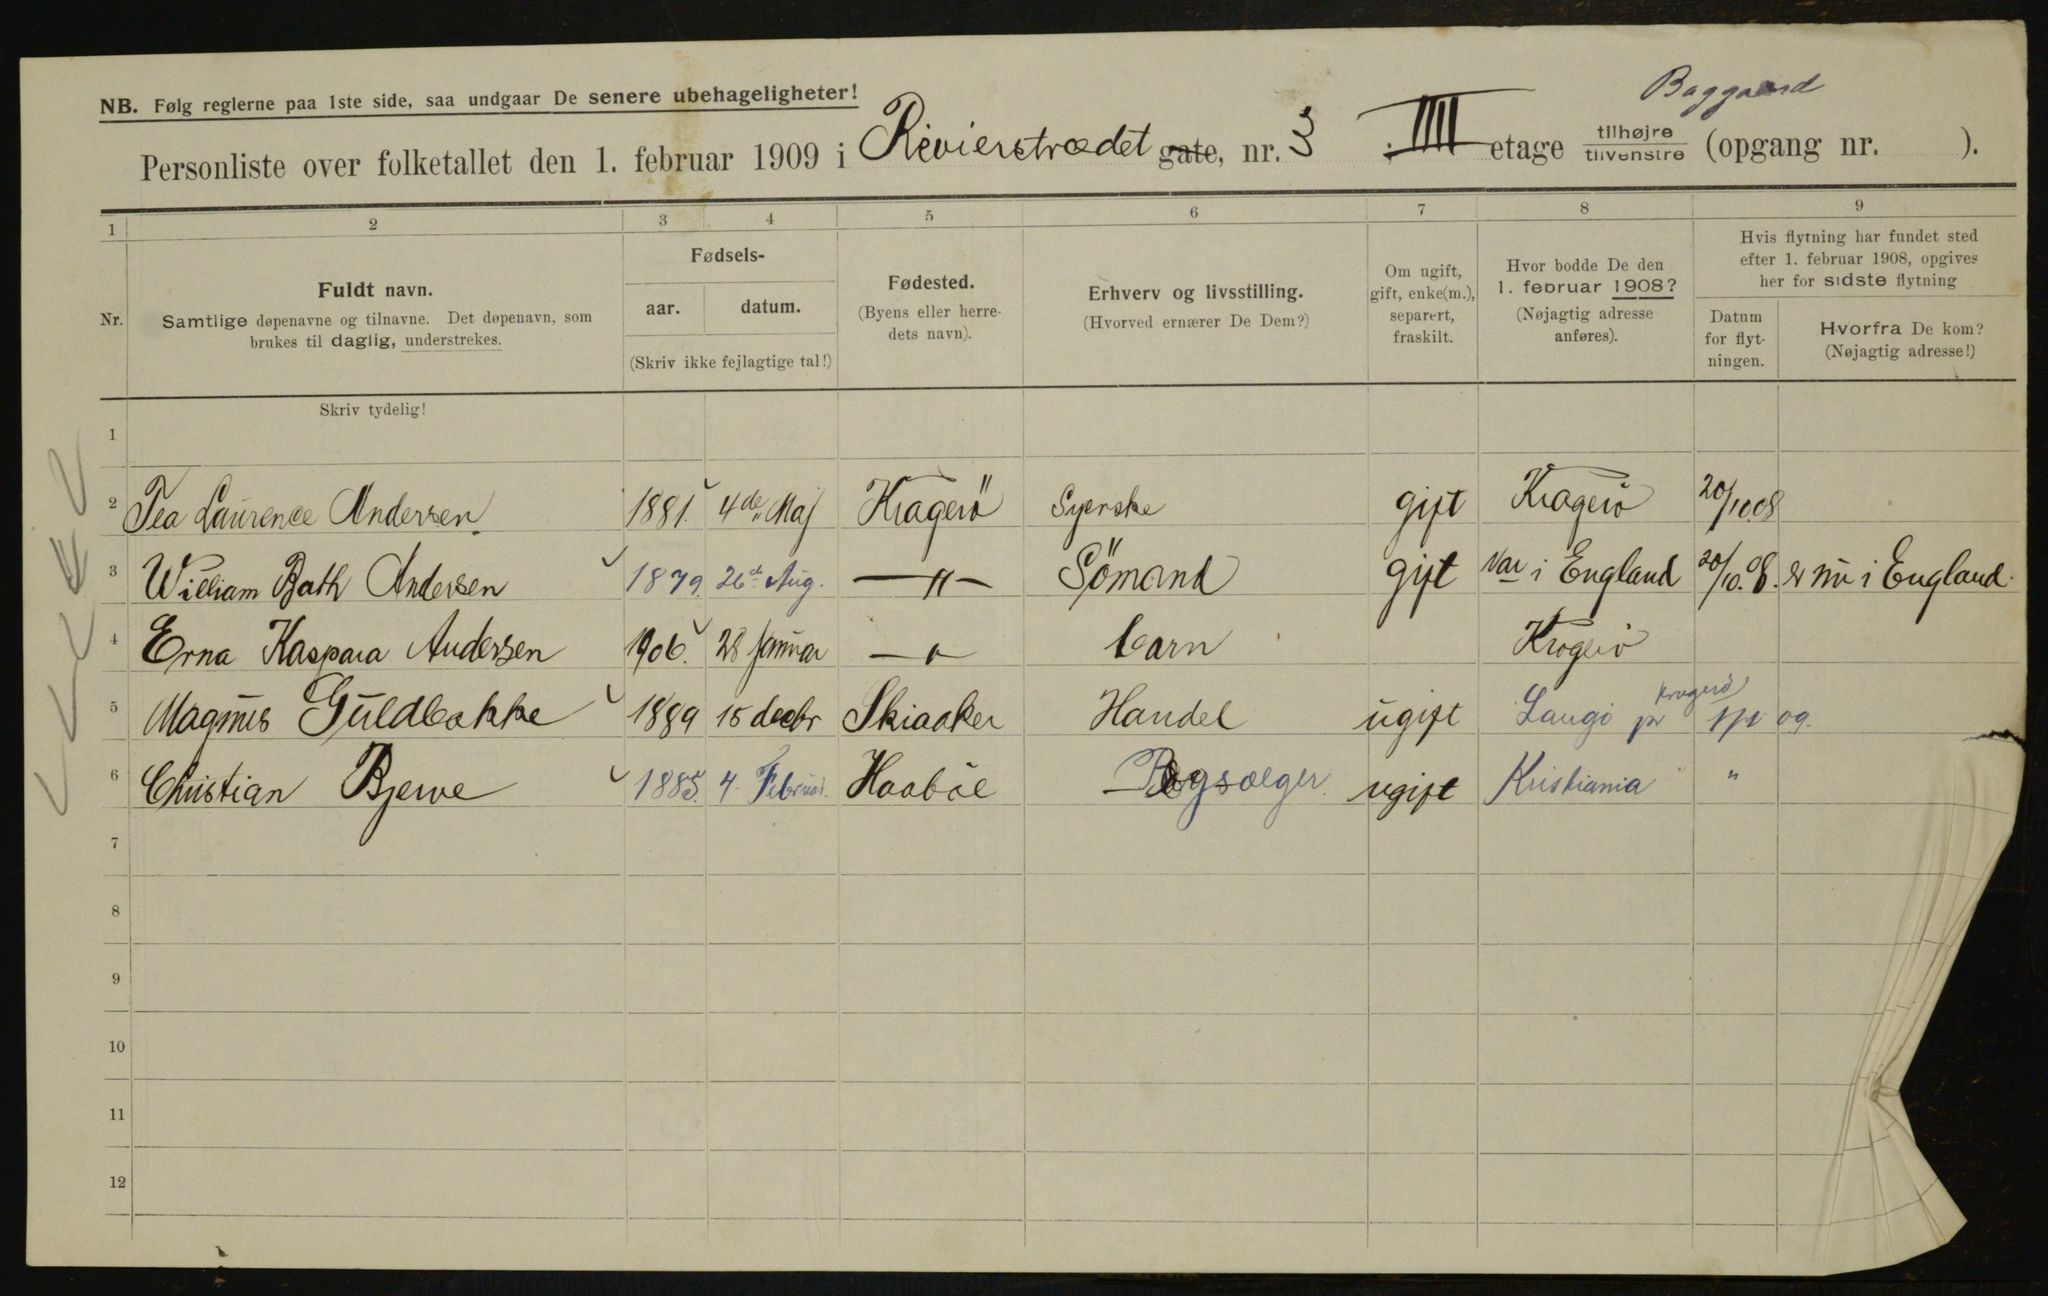 Baggaard
NB. Følg reglerne paa 1ste side, saa undgaar De senere ubehageligheter!
Personliste over folketallet den 1. februar 1909 i Revierstrædet gate, nr. 3 IIII etage tilhøjre tilvenstre (opgang nr. ).
1 2 3 4 5 6 7 8 9
Nr.
Fuldt navn.
Samtlige døpenavne og tilnavne. Det døpenavn, som
brukes til daglig, understrekes.
Skriv tydelig!
Fødsels-
aar. datum.
(Skriv ikke fejlagtige tal!)
Fødested.
(Byens eller herre-
dets navn).
Erhverv og livsstilling.
(Hvorved ernærer De Dem?)
Om ugift,
gift, enke(m.),
separert,
fraskilt.
Hvor bodde De den
1. februar 1908?
(Nøjagtig adresse
anføres).
Hvis flytning har fundet sted
efter 1. februar 1908, opgives
her for sidste flytning
Datum
for flyt-
ningen.
Hvorfra De kom?
(Nøjagtig adresse!)
1
2 Tea Laurence Andersen 1881. 4de Maj Kragerö Syerske gift Kragerö 20/10.08
3 William Bath Andersen 1879. 26de Aug. —"— Sömand gift var i England 20/10.08. er nu i England.
4 Erna Kaspara Andersen 1906. 28 Januar —"— barn Kragerö
5 Magnus Guldbakke 1889 15 decbr Skiaaker Handel ugift Langö pr Kragerö 1/1 09.
6 Christian Bjerve 1885. 4. Februar. Haaböl Bogsælger. ugift Kristiania "
7
8
9
10
11
12